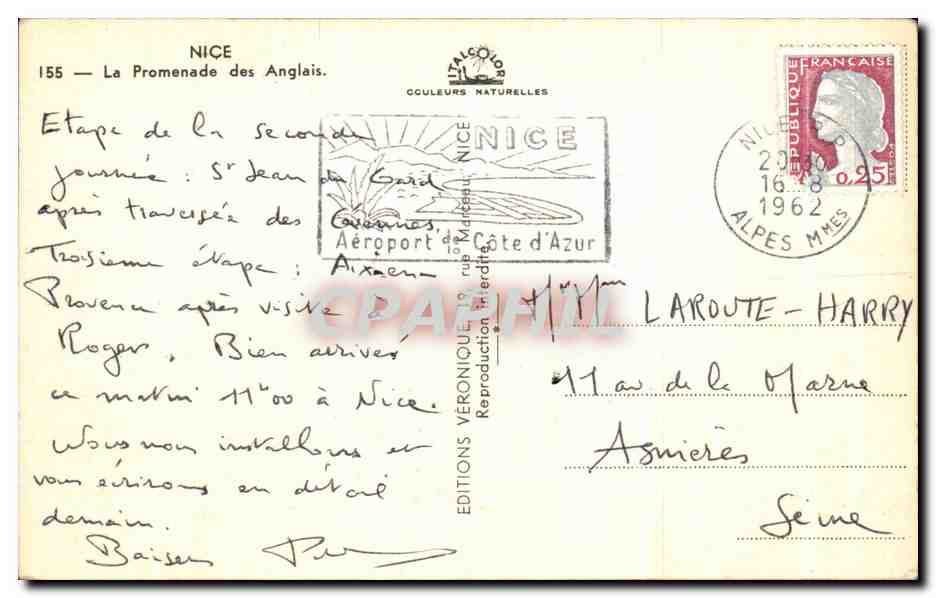 NICE
155 — La Promenade des Anglais.
ITALCOLOR
COULEURS NATURELLES
Etape de la seconde
journée : St Jean du Gard
après traversée des Cevennes,
Troisieme étape : Aix en
Provence après visite à
Rogers. Bien arrivés
ce matin 11h00 à Nice.
Nous nous installons et
vous écrirons en détail
demain.
Baisers
NICE
Aéroport de la Côte d'Azur
EDITIONS VÉRONIQUE, 19, rue Marceau, NICE
Reproduction interdite
CPAPHIL
REPUBLIQUE FRANÇAISE
0,25
NICE R.P.
20H30
16-8
1962
ALPES MMES
LAROUTE - HARRY
11 av de la Marne
Asnières
Seine